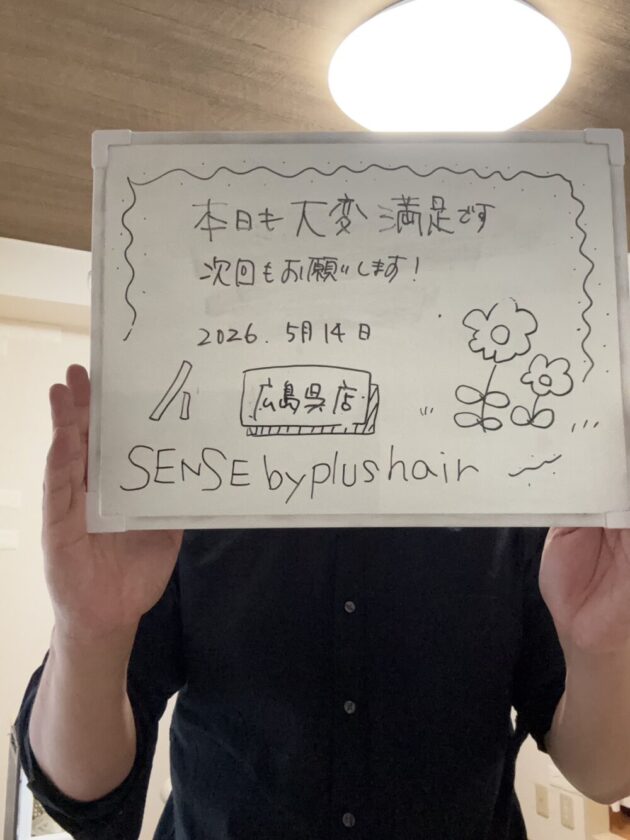 本日も大変満足です
次回もお願いします!
2026.5月14日
広島呉店
SENSE byplushair